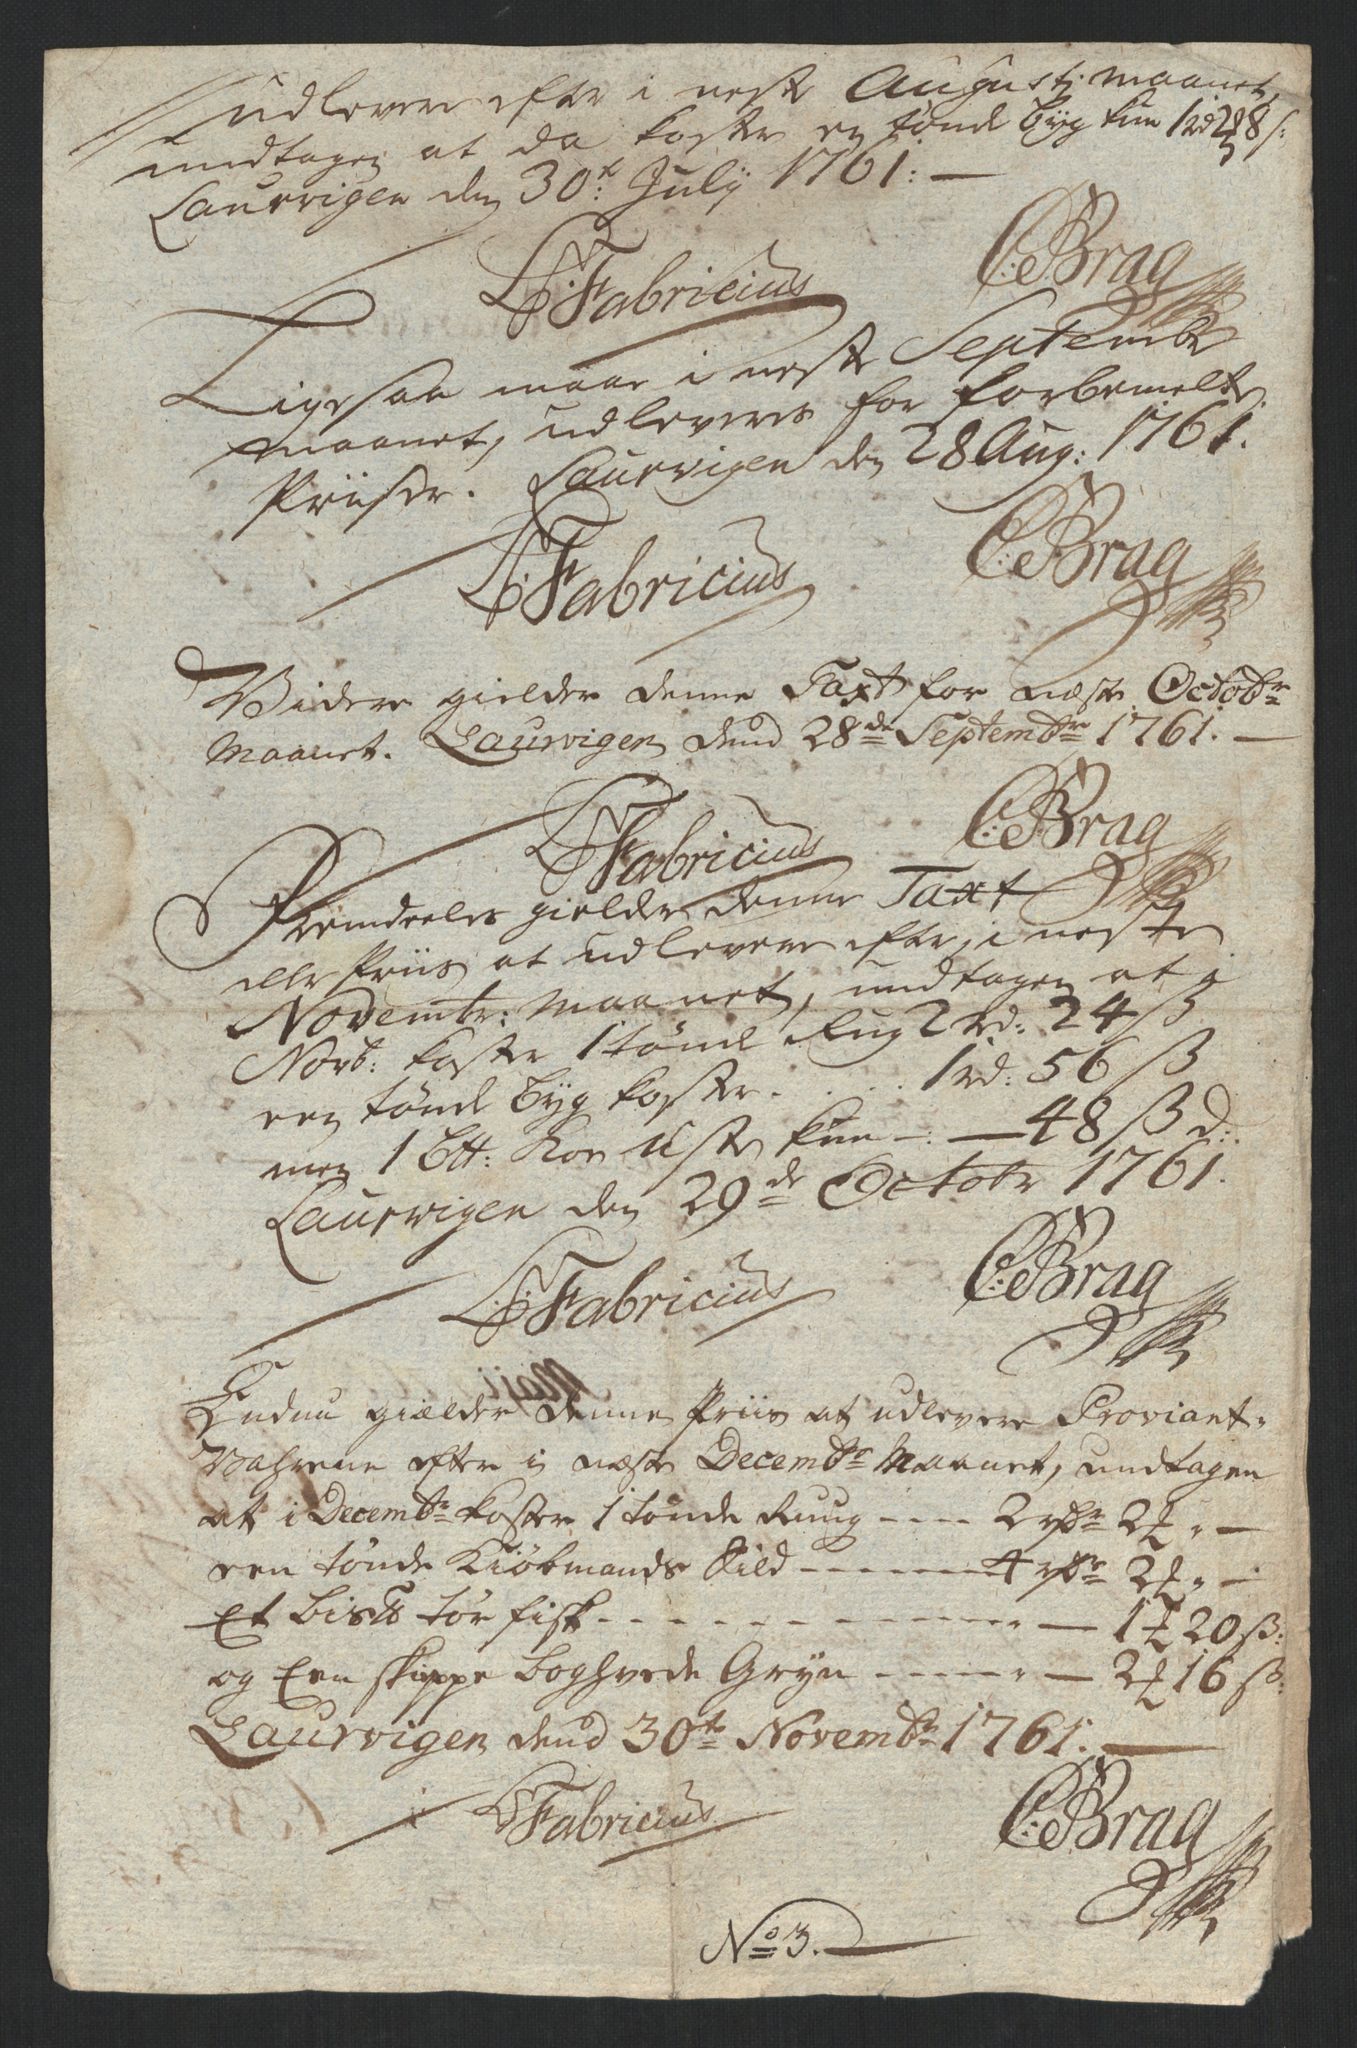 udlevere efter i neste Augustj maanet,
undtagen at da koster en tønde Byg kun 1 rd 2 ₰ 8 s:
Laurvigen den 30te July 1761: —
Fabricius C: Brag
Ligesaa maae i neste Septembr
maanet, udleveres for forbemelte
Priiser. Laurvigen den 28 Aug: 1761.
Fabricius C: Brag
Videre gielder denne Taxt for næste Octobr
Maanet. Laurvigen dend 28de Septembr 1761. —
Fabricius C: Brag
Fremdeeles gielder denne Taxt
eller Priis at udlevere efter, i neste
Novembr: Maanet, undtagen at i
Novb: koster 1 tønde Rug 2 rd: 24 ß
een tønde Byg koster . . . . 1 rd: 56 ß
men 1 Btt: Koe kun —: — 48 ß d:
Laurvigen den 29de Octobr 1761.
Fabricius C: Brag
Endnu gielder denne Priis at udlevere Proviant-
Vahrene efter i næste Decembr Maanet, undtagen
at i Decembr koster 1 tønde Ruug ---- 2 rdr 2 ₰ " —
een tønde Kiøbmands Sild ------- 4 rdr 2 ₰ " —
Et bis℔ tør fisk - - - - - - - - — 1 ₰ 20 ß:
og Een skippe Boghvede Gryn ------ — 2 ₰ 16 ß:
Laurvigen dend 30te Novembr 1761. —
Fabricius C: Brag
No 3. —